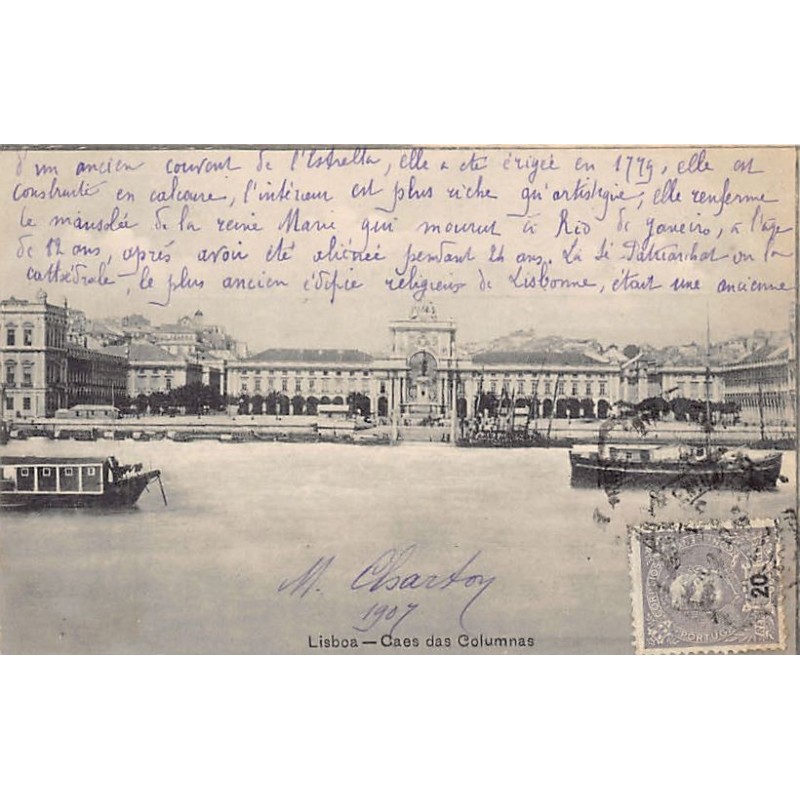 d'un ancien couvent de l'Estrella, elle a été érigée en 1779, elle est
construite en calcaire, l'intérieur est plus riche qu'artistique; elle renferme
le mausolée de la reine Marie qui mourut à Rio de Janeiro, à l'âge
de 82 ans, après avoir été aliénée pendant 24 ans. La Sé Patriarchat ou la
cathédrale, le plus ancien édifice religieux de Lisbonne, était une ancienne
M. Charton
1907
Lisboa — Caes das Columnas
CORREIOS
20
PORTUGAL